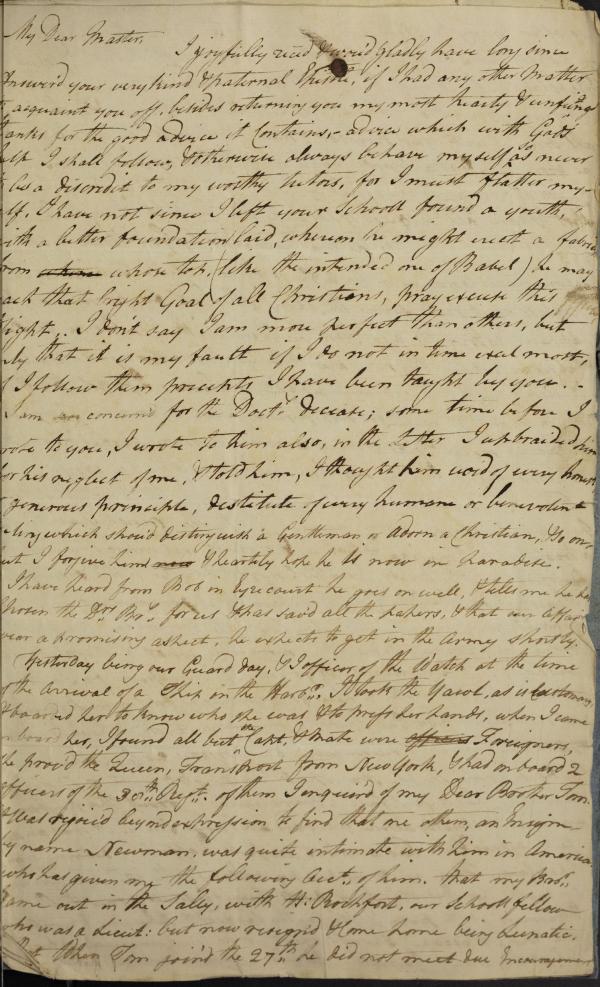 My Dear Master,
I joyfully rec'd & wou'd Gladly have long since
Answerd your very kind & rational Epistle, if I had any other Matter
acquaint you off, besides returning you my most hearty & unfeigned
thanks for the good advice it Contains, - advice which with God's
help I shall follow, & otherwise always behave myself, as never
be a discredit to my worthy tutors, for I must flatter my-
self, I have not since I left your School found a youth,
with a better foundation laid, whereon he might erect a fabrick
from whose top, (like the intended one of Babel) he may
that bright Goal of all Christians, pray excuse this
flight, . I dont say I am more perfect than others, but
only that it is my fault if I do not in time excel most,
if I follow them precepts I have been taught by you. -
I am concernd for the Doctr. decease; some time before I
wrote to you, I wrote to him also, in the Letter I upbraided him
for his neglect of me, & told him, I thought him void of every honest
generous principle, destitute of every humane or benevolent
which shou'd distinguish a Gentleman or Adorn a Christian, & so on
but I forgive him & heartily hope he is now in paradise.
I have heard from Bob in Eyrecourt he goes on well, & tells me he has
Chosen the Drs. Br. for us & has saved all the papers, & that our Affairs
wear a promising aspect, he expects to get in the Army shortly.
Yesterday being our Guard day, & I officer of the Watch at the time
of the Arrival of a Ship in the Harbr., I took the Yawl, as is customary
& boarded her to know who she was & to press her hands, when I came
on board her, I found all but the Capt. & Mate were officers Foreigners,
she prov'd the Queen, Transport from New York, & had on board 2
officers of the 30th Regt. of them I enquired of my Dear Brother Tom.
& was rejoic'd beyond expression to find that one of them, an Ensign
by name Newman, was quite intimate with him in America
who has given me the following Acct. of him. that my Bror.
came out in the Sally, with H: Rochfort, our School fellow
who was a Lieut: but now resign'd & Come home being lunatic.
When Tom join'd the 27th he did not meet due Encouragement